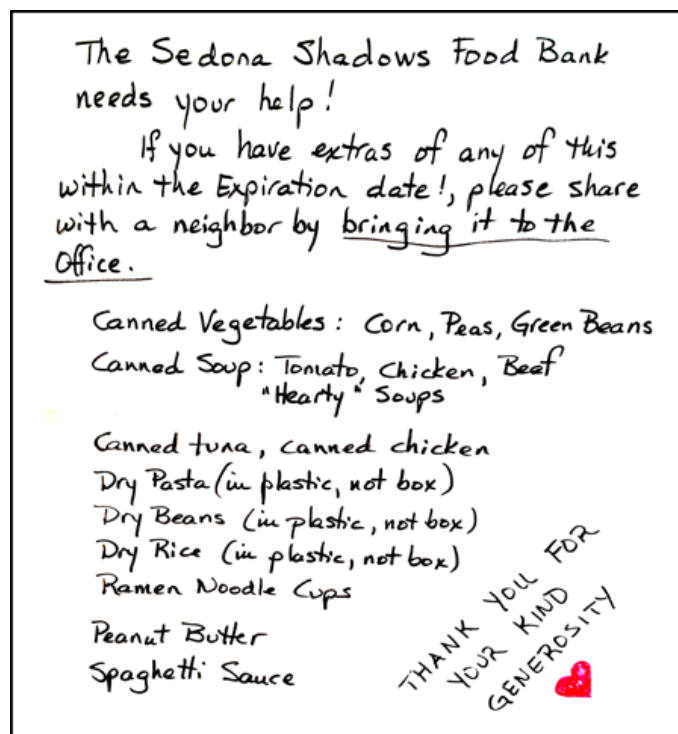 The Sedona Shadows Food Bank
needs your help!
If you have extras of any of this
within the Expiration date!, please share
with a neighbor by bringing it to the
Office.
Canned Vegetables: Corn, Peas, Green Beans
Canned Soup: Tomato, Chicken, Beef
"Hearty" Soups
Canned tuna, canned chicken
Dry Pasta (in plastic, not box)
Dry Beans (in plastic, not box)
Dry Rice (in plastic, not box)
Ramen Noodle Cups
Peanut Butter
Spaghetti Sauce
THANK YOU FOR
YOUR KIND
GENEROSITY